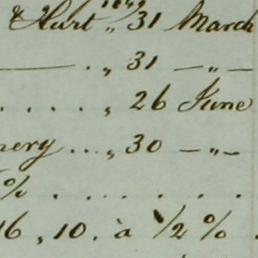 & Hurt „ 31 March
— . „ 31 — „ —
. . . . . „ 26 June
nery ... „ 30 — „ —
% . . . . . . .
16 , 10. à ½ % .